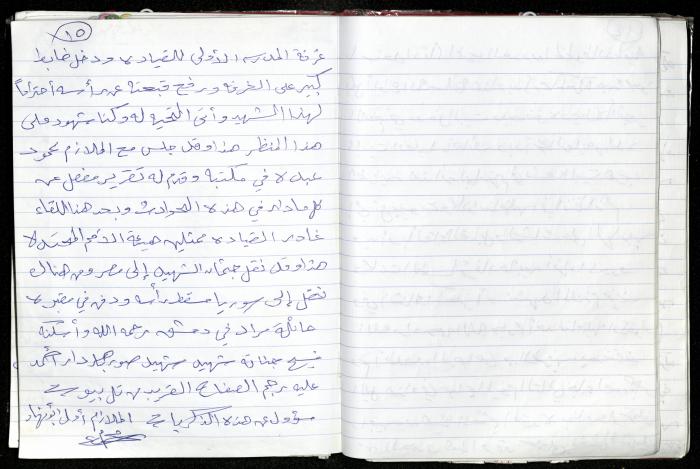 ١٥
غرفة المدرسه الأولى للقياده ودخل ضابط
كبير على الغرفة ورفع قبعته عن رأسه أحتراماً
لهذا الشهيد وأدى التحيه له وكنا شهود على
هذا المنظر هذا وقد جلس مع الملازم محمود
عبده في مكتبة وقدم له تقرير مفصل عن
كل ما دار في هذه الحوادث وبعد هذا اللقاء
غادر القياده ممثلين هيئة الأمم المتحده
هذا وقد نقل جثمان الشهيد إلى مصر ومن هناك
نقل إلى سوريا مسقط رأسه ودفن في مقبرة
عائلة مراد في دمشق رحمه الله وأسكنه
فسيح جناته شهيد شهيد صور
عليه رجم الصفاح القريب من تل بيوت
مسؤول عن هذه الذكريات الملازم أول